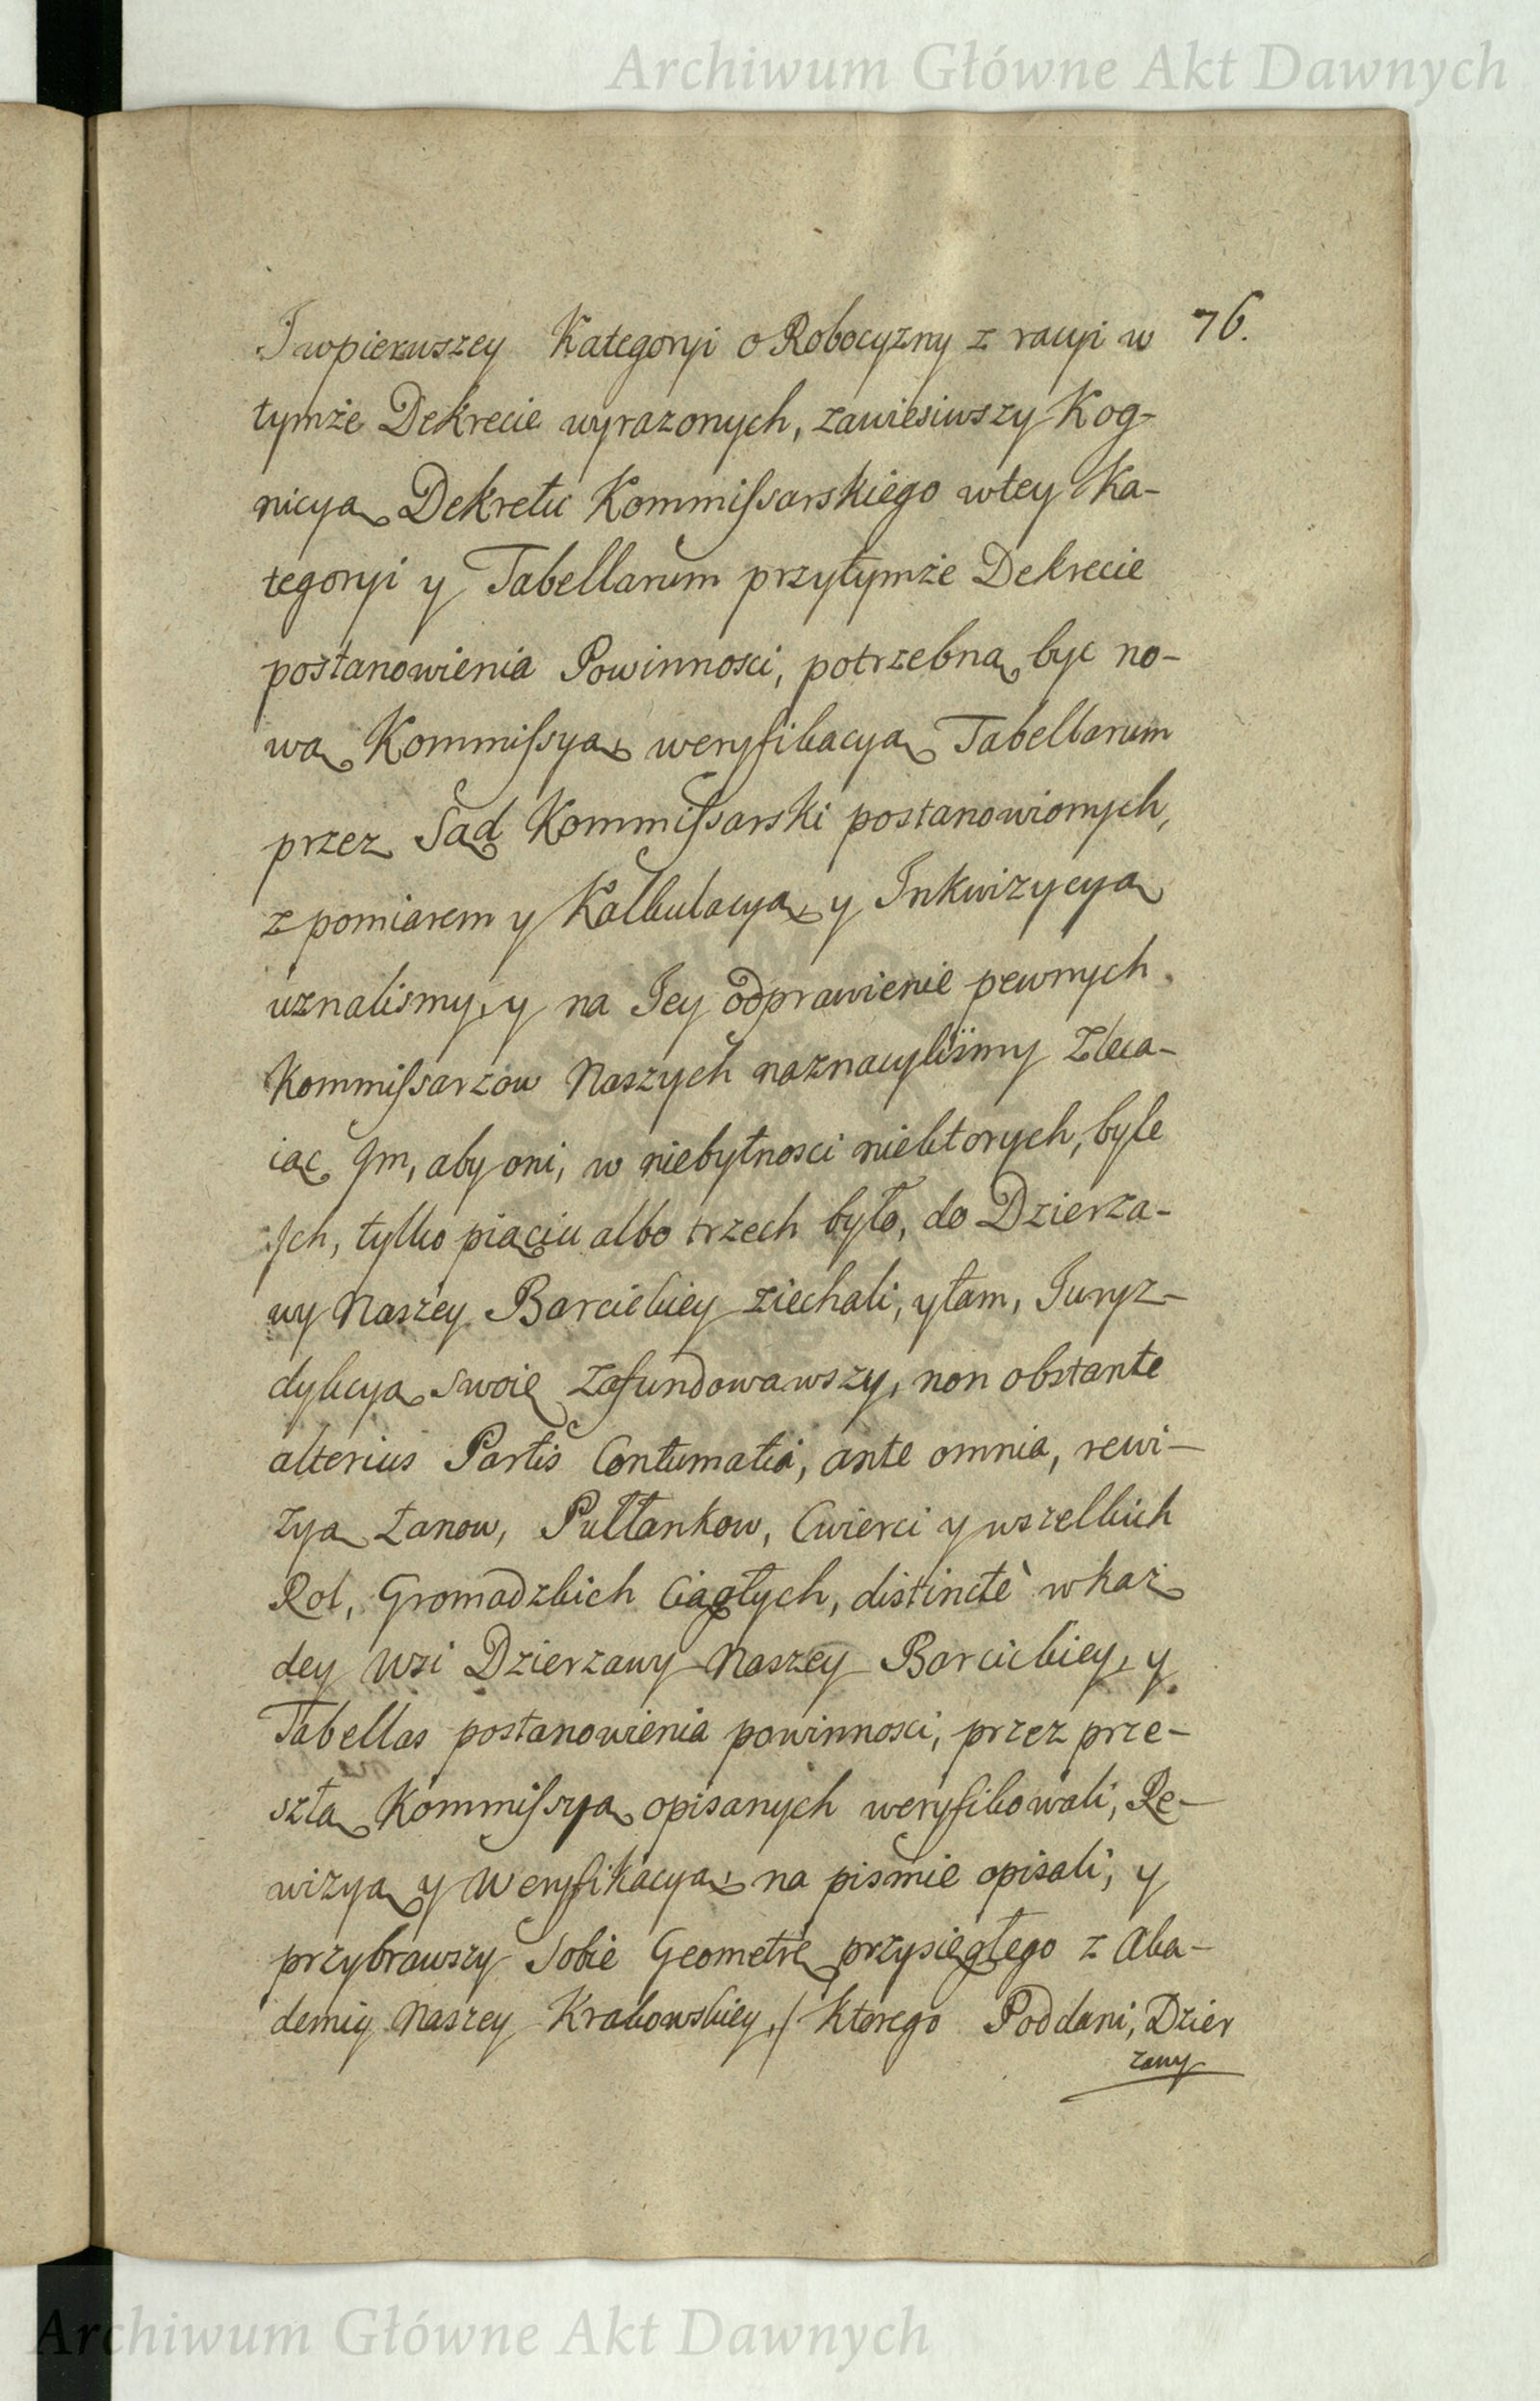 Archiwum Główne Akt Dawnych
76.
I wpierwszey Kategoryi o Robocyzny z racyi w
tymże Dekrecie wyrazonych, zawiesiwszy Kog-
nicyą Dekretu Kommissarskiego wtey Ka-
tegoryi y Tabellarum przytymże Dekrecie
postanowienia Powinnosci, potrzebną byc no-
wą Kommissyą, weryfikacyą Tabellarum
przez Sąd Kommissarski postanowionych,
z pomiarem y Kalkulacyą, y Inkwizycyą
uznalismy, y na Jey odprawienie pewnych
Kommissarzow Naszych naznaczylismy Zleca-
iąc Jm, aby oni, w niebytnosci niektorych, byle
Jch, tylko piąciu albo trzech było, do Dzierza-
wy Naszey Barcickiey ziechali, ytam, Juryz-
dykcyą swoię Zafundowawszy, non obstante
alterius Partis Contumatiâ, ante omnia, rewi-
zyą Łanow, Pułłankow, Cwierci y wszelkich
Rol, Gromadzkich Ciągłych, distinctè w kaz
dey Wsi Dzierzawy Naszey Barcickiey, y
Tabellas postanowienia powinnosci, przez prze-
szłą Kommissyą opisanych weryfikowali, Re-
wizyą y Weryfikacyą, na pismie opisali, y
przybrawszy Sobie Geometrę przysięgłego z Aka-
demiy Naszey Krakowskiey, / ktorego Poddani, Dzier
zawy
Archiwum Główne Akt Dawnych